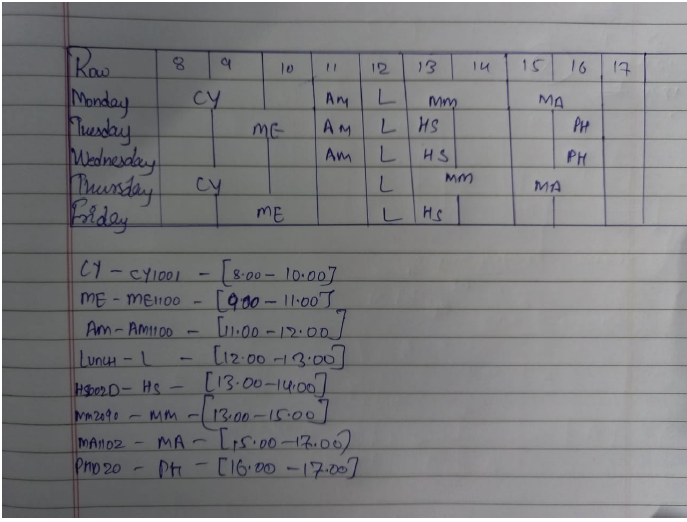 Row 8 9 10 11 12 13 14 15 16 17
Monday CY AM L MM MA
Tuesday ME AM L HS PH
Wednesday AM L HS PH
Thursday CY L MM MA
Friday ME L HS
CY - CY1001 - [8.00 - 10.00]
ME - ME1100 - [9.00 - 11.00]
AM - AM1100 - [11.00 - 12.00]
LUNCH - L - [12.00 - 13.00]
- HS - [13.00 - 14.00]
MM2090 - MM - [13.00 - 15.00]
MA1102 - MA - [15.00 - 17.00)
PH1020 - PH - [16.00 - 17.00]